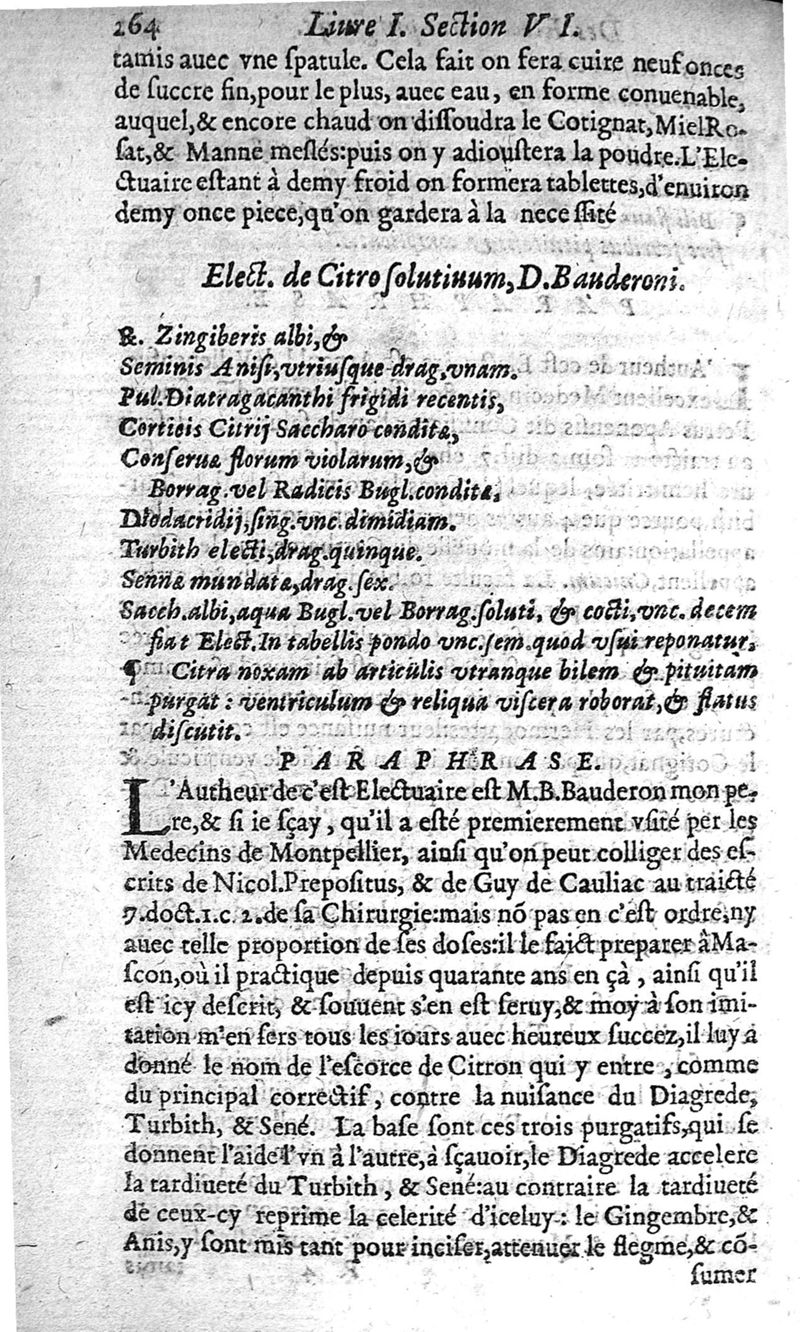 264 Liure I. Section VI.
tamis auec vne ſpatule. Cela fait on fera cuire neuf onces
de ſuccre fin, pour le plus, auec eau, en forme conuenable,
auquel, & encore chaud on diſſoudra le Cotignat, Miel Ro-
ſat, & Manne meſlés: puis on y adiouſtera la poudre. L'Ele-
ctuaire eſtant à demy froid on formera tablettes, d'enuiron
demy once piece, qu'on gardera à la neceſſité
Elect. de Citro ſolutiuum, D. Bauderoni.
℞. Zingiberis albi, &
Seminis Aniſi, vtriuſque drag, vnam.
Pul. Diatragacanthi frigidi recentis,
Corticis Citrij Saccharo conditæ,
Conſeruæ florum violarum, &
Borrag. vel Radicis Bugl. conditæ,
Diodacridij, ſing. vnc. dimidiam.
Turbith electi, drag. quinque.
Sennæ mundatæ, drag. ſex.
Sacch. albi, aqua Bugl. vel Borrag. ſoluti, & cocti, vnc. decem
fiat Elect. In tabellis pondo vnc. ſem. quod vſui reponatur.
¶ Citra noxam ab articulis vtranque bilem & pituitam
purgat: ventriculum & reliqua viſcera roborat, & flatus
diſcutit.
PARAPHRASE.
L'Autheur de c'eſt Electuaire eſt M. B. Bauderon mon pe-
re, & ſi ie ſçay, qu'il a eſté premierement vſité per les
Medecins de Montpellier, ainſi qu'on peut colliger des eſ-
crits de Nicol. Prepoſitus, & de Guy de Cauliac au traicté
7. doct. 1. c. 2. de ſa Chirurgie: mais nõ pas en c'eſt ordre, ny
auec telle proportion de ſes doſes: il le faict preparer à Ma-
ſcon, où il practique depuis quarante ans en çà, ainſi qu'il
eſt icy deſcrit, & ſouuent s'en eſt ſeruy, & moy à ſon imi-
tation m'en ſers tous les iours auec heureux ſuccez, il luy a
donné le nom de l'eſcorce de Citron qui y entre, comme
du principal correctif, contre la nuiſance du Diagrede,
Turbith, & Sené. La baſe ſont ces trois purgatifs, qui ſe
donnent l'aide l'vn à l'autre, à ſçauoir, le Diagrede accelere
la tardiueté du Turbith, & Sené: au contraire la tardiueté
de ceux-cy reprime la celerité d'iceluy: le Gingembre, &
Anis, y ſont mis tant pour inciſer, attenuer le flegme, & cõ-
ſumer